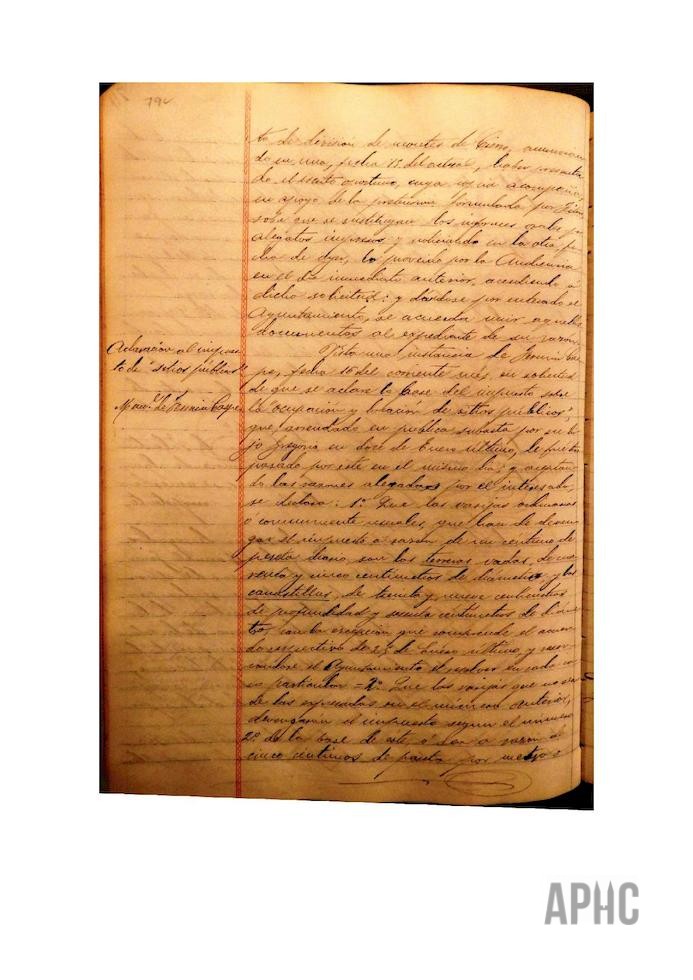 794
to de división de montes de Cieza, anuncian
do en una, fecha 15 del actual, haber presenta
do el escrito oportuno, cuya copia acompaña,
en apoyo de la pretensión formulada por
sobre que se sustituyan los informes orales por
alegatos impresos; y noticiando en la otra, fe
cha de ayer, lo proveido por la Audiencia
en el dia inmediato anterior, accediendo á
dicha solicitud: y dándose por enterado el
Ayuntamiento, se acuerda unir aquellos
documentos al expediente de su razon.
Aclaración al impues
to de "sitios públicos"
de Fermin Caspe
Vista una instancia de Fermin Cas
pe, fecha 16 del corriente mes, en solicitud
de que se aclare la base del impuesto sobre
la "ocupación y de sitios públicos",
que, arrendado en pública subasta por su hi
jo Gregorio en doce de Enero último, le fué tras
pasado por este en el mismo dia: y aceptan
do las razones alegadas por el interesado,
se declara: 1º Que las vasijas ordinarias
ó comunmente usuales, que han de deven
gar el impuesto á razon de un centimo de
peseta diario, son los terreros vados, de cua
renta y cinco centimetros de diametro y los
canastillas, de treinta y nueve centimetros
de profundidad y sesenta centimetros de diáme
tro, con la excepción que comprende el acuer
do respectivo de 25 de Enero último, y reser
vandose el Ayuntamiento el resolver en cada ca
so particular = 2º Que las vasijas que no sean
de las expresadas en el número anterior,
devengarán el impuesto segun el número
2º de la base de este, ó sea á razon de
cinco centimos de peseta por metro
APHC